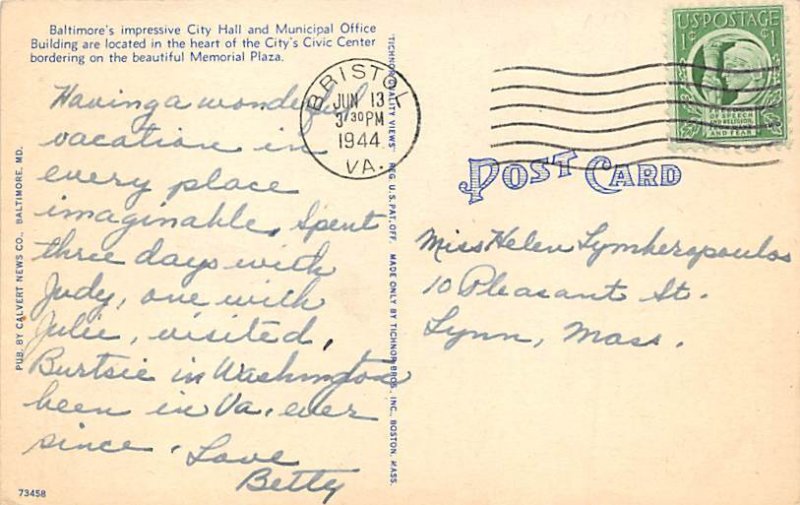 Baltimore's impressive City Hall and Municipal Office
Building are located in the heart of the City's Civic Center
bordering on the beautiful Memorial Plaza.
Having a wonderful
vacation in
every place
imaginable. Spent
three days with
Judy, one with
Julie, visited,
Burtsie in Washington
been in Va. ever
since. Love
Betty
73458
PUB. BY CALVERT NEWS CO., BALTIMORE, MD.
"TICHNOR QUALITY VIEWS" REG. U. S. PAT. OFF. MADE ONLY BY TICHNOR BROS., INC., BOSTON, MASS.
BRISTOL
JUN 13
3 30 PM
1944
VA.
U.S. POSTAGE
1¢ 1¢
FREEDOM
OF SPEECH
AND RELIGION,
AND FEAR
POST CARD
Miss Helen Lymberopoulos
10 Pleasant St.
Lynn, Mass.